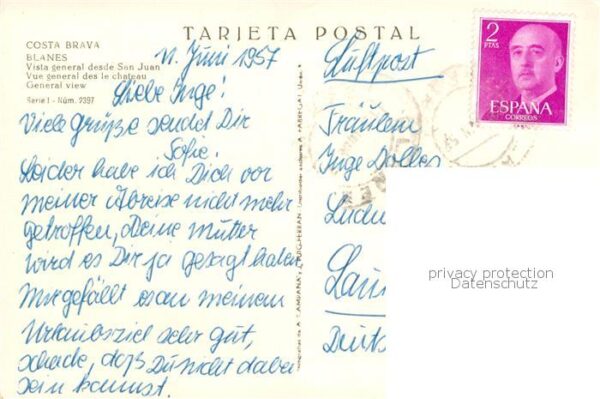 TARJETA POSTAL
COSTA BRAVA
BLANES
Vista general desde San Juan
Vue general des le chateau
General view
Serie I - Núm. 2397
11. Juni 1957
Liebe Inge!
Viele Grüße sendet Dir
Sofie!
Leider habe ich Dich vor
meiner Abreise nicht mehr
getroffen, Deine Mutter
wird es Dir ja gesagt haben
Mir gefällt es an meinem
Urlaubsziel sehr gut,
schade, daß Du nicht dabei
sein kannst.
Luftpost
Fräulein
Inge Dolles
Ludw
Lan
Deuts
2
PTAS
ESPAÑA
CORREOS
privacy protection
Datenschutz